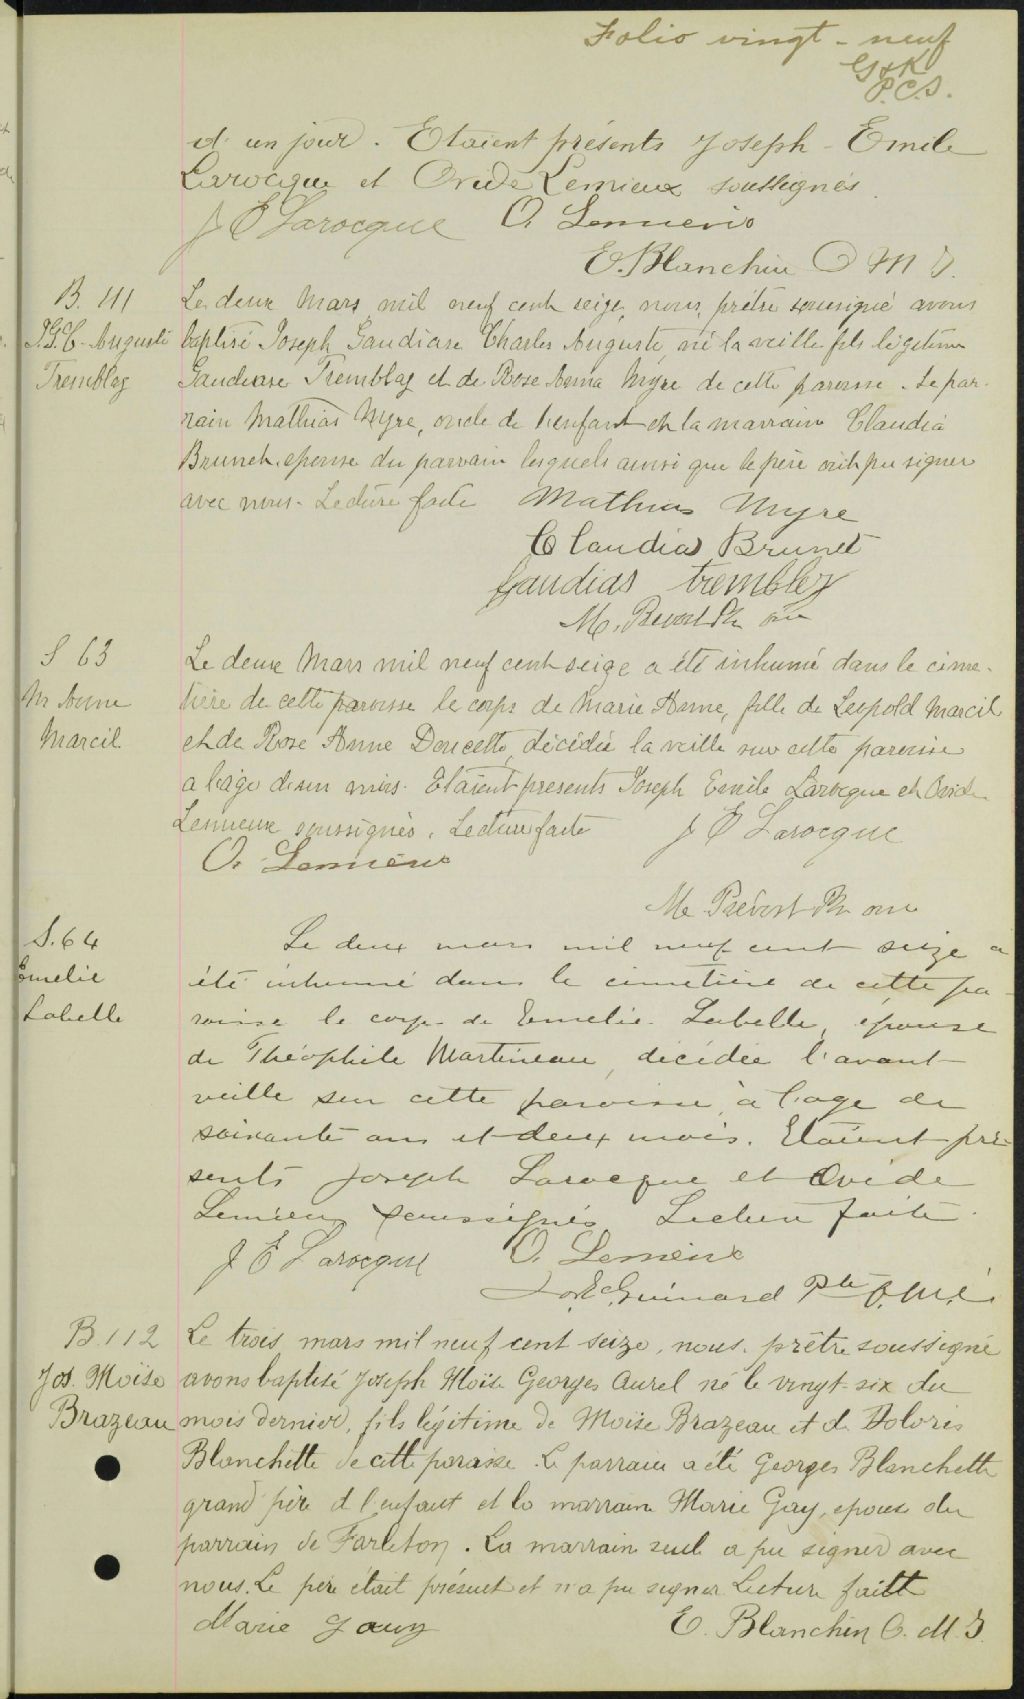 Folio vingt-neuf
G & K
P.C.S.
et un jour. Etaient présents Joseph-Emile
Larocque et Ovide Lemieux soussignés
J E Larocque O. Lemieux
E. Blanchin O M I.
B. 111
J.G.C. Auguste
Tremblay
Le deux Mars mil neuf cent seize, nous, prêtre soussigné avons
baptisé Joseph Gaudiase Charles Auguste, né la veille fils légitime
Gaudiase Tremblay et de Rose Anna Myre de cette paroisse. Le par-
rain Mathias Myre, oncle de l'enfant et la marraine Claudia
Brunet, epouse du parrain lesquels ainsi que le père ont pu signer
avec nous. Lecture faite Mathias Myre
Claudia Brunet
Gaudias Trembley
M. Prevost Ptr omi
S 63
M Anne
Marcil
Le deux Mars mil neuf cent seize a été inhumé dans le cime-
tière de cette paroisse le corps de Marie Anne, fille de Leopold Marcil
et de Rose Anne Doucette, décédée la veille sur cette paroisse
a l'age de un mois. Etaient presents Joseph Emile Larocque et Ovide
Lemieux soussignés. Lecture faite J E Larocque
O. Lemieux
M Prévost Ptr omi
S. 64
Emelie
Labelle
Le deux mars mil neuf cent seize a
été inhumé dans le cimetière de cette pa-
roisse le corps de Emelie Labelle, épouse
de Théophile Martineau, décédée l'avant
veille sur cette paroisse, à l'age de
soixante ans et deux mois. Etaient pré-
sents Joseph Larocque et Ovide
Lemieux soussignés Lecture faite.
J E Larocque O. Lemieux
Guinard Ptre O.M.I.
B. 112
Jos. Moïse
Brazeau
Le trois mars mil neuf cent seize, nous, prêtre soussigné
avons baptisé Joseph Moïse Georges Aurel né le vingt-six du
mois dernier, fils légitime de Moïse Brazeau et de Doloris
Blanchette de cette paroisse. Le parrain a été Georges Blanchette
grand père d l'enfant et la marraine Marie Gay, epouse du
parrain de Farleton. La marraine seule a pu signer avec
nous. Le père était présent et n'a pu signer Lecture faitte
Marie Gauy E. Blanchin O. M. I.